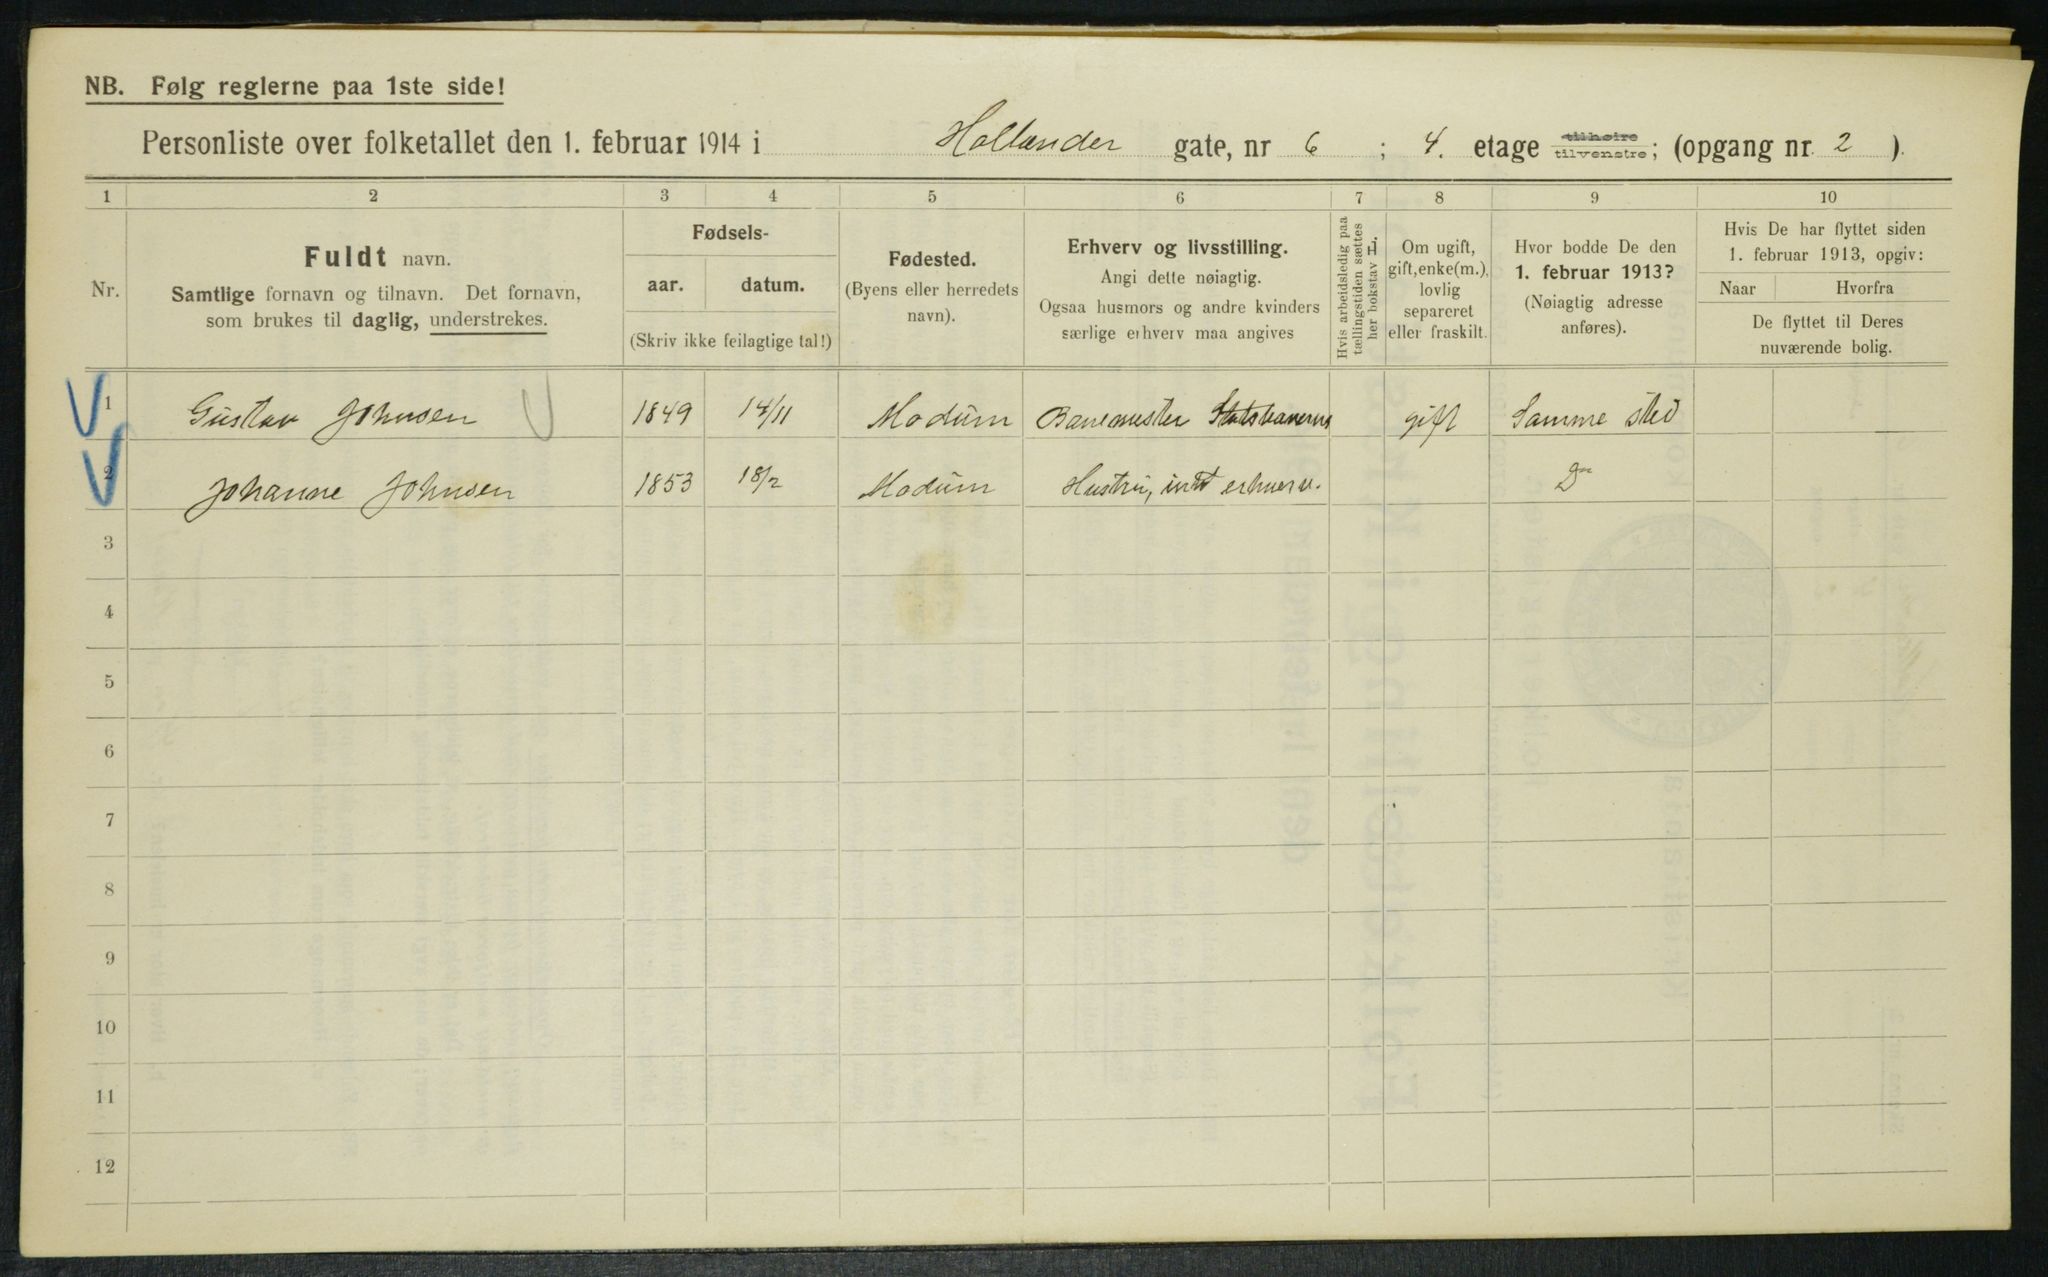 NB. Følg reglerne paa 1ste side!
Personliste over folketallet den 1. februar 1914 i Hollænder gate, nr 6 ; 4. etage tilhøire tilvenstre; (opgang nr. 2 ).
1 2 3 4 5 6 7 8 9 10
Nr.
Fuldt navn.
Samtlige fornavn og tilnavn. Det fornavn,
som brukes til daglig, understrekes.
Fødsels-
aar. datum.
(Skriv ikke feilagtige tal!)
Fødested.
(Byens eller herredets
navn).
Erhverv og livsstilling.
Angi dette nøiagtig.
Ogsaa husmors og andre kvinders
særlige erhverv maa angives
Hvis arbeidsledig paa
tællingstiden sættes
her bokstav
Om ugift,
gift, enke(m.),
lovlig
separeret
eller fraskilt.
Hvor bodde De den
1. februar 1913?
(Nøiagtig adresse
anføres).
Hvis De har flyttet siden
1. februar 1913, opgiv:
Naar Hvorfra
De flyttet til Deres
nuværende bolig.
1 Gustav Johnsen 1849 14/11 Modum Banemester Statsbanerne gift Samme sted
2 Johanne Johnsen 1853 18/2 Modum Hustru, intet erhverv. Do
3
4
5
6
7
8
9
10
11
12